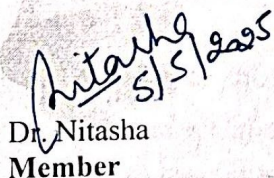 Nitasha
5/5/2025
Dr. Nitasha
Member